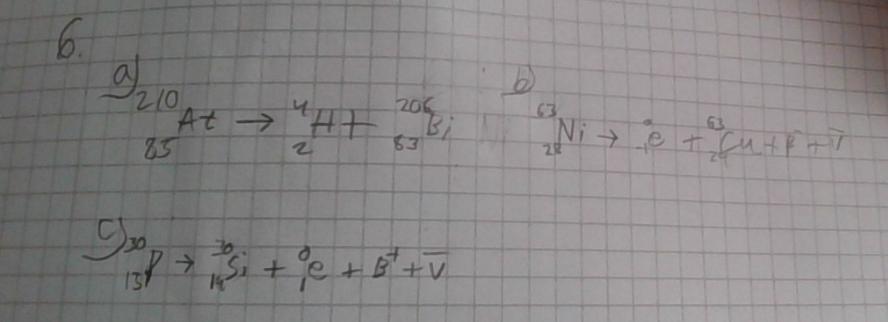 6.
a) ²¹⁰₈₅At → ⁴₂H + ²⁰⁶₈₃Bi
b) ⁶³₂₈Ni → ⁰₋₁e + ⁶³₂Cu + β⁻ + V̅
c) ³⁰₁₅P → ³⁰₁₄Si + ⁰₁e + B⁺ + V̅